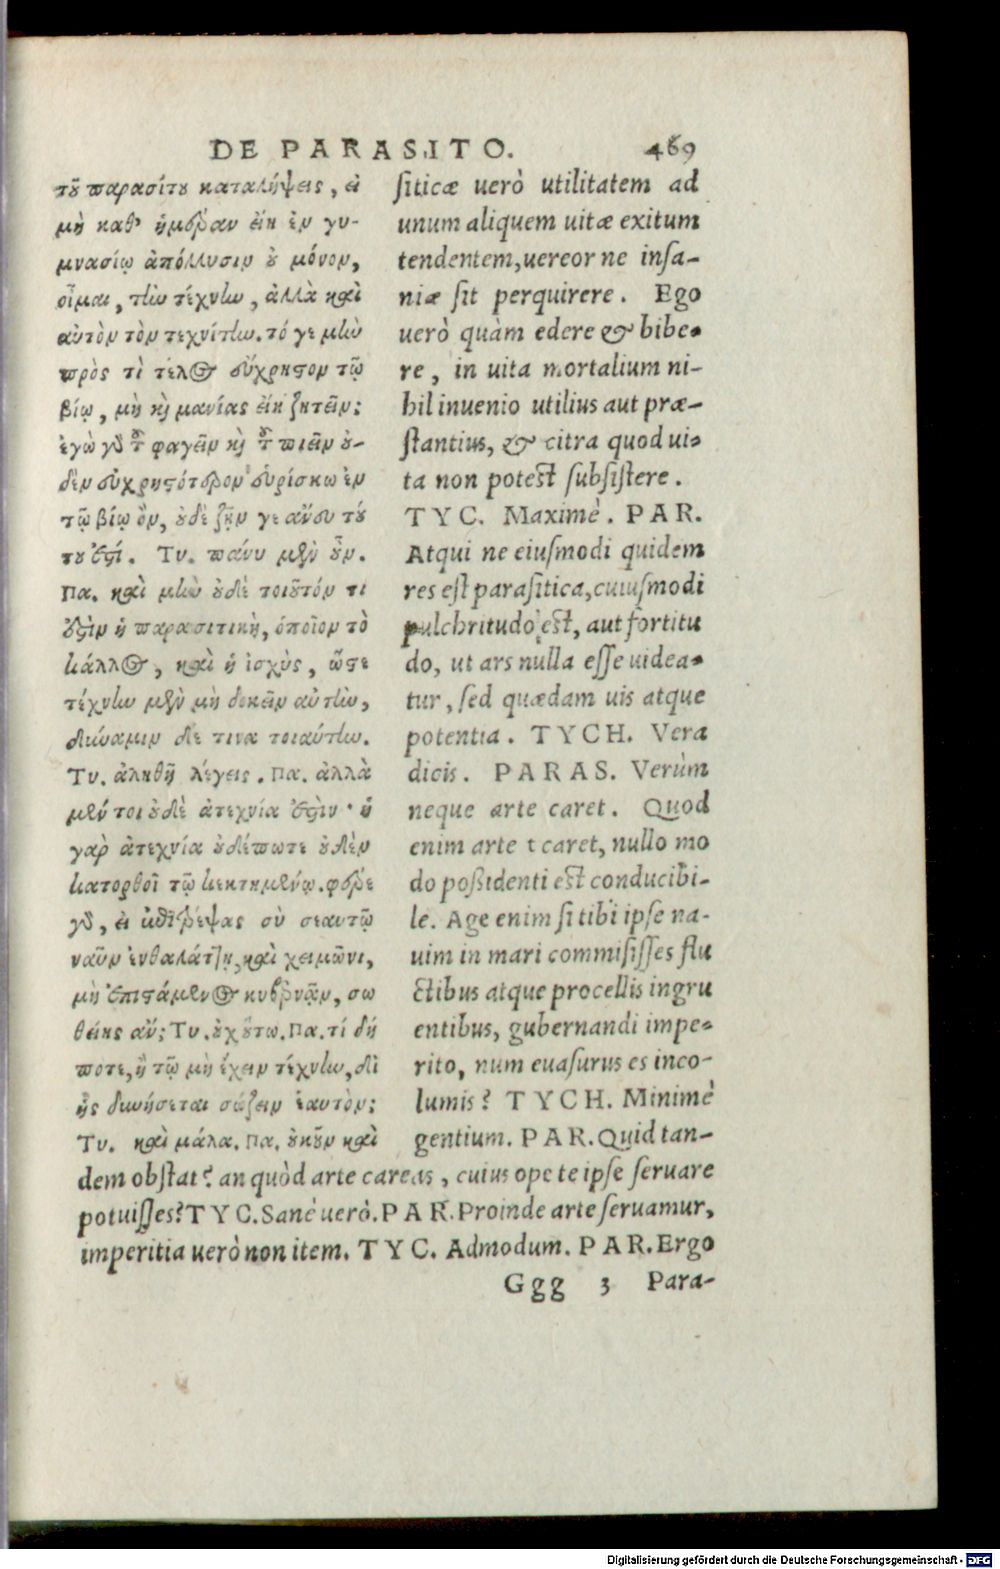 DE PARASITO. 469
τοῦ παρασίτου καταλήψεις, εἰ
μὴ καθ' ἡμέραν εἴη ἐν γυ-
μνασίῳ ἀπόλλυσιν οὐ μόνον,
οἶμαι, τὴν τέχνην, ἀλλὰ καὶ
αὐτὸν τὸν τεχνίτην. τό γε μὴν
πρὸς τὶ τέλος εὔχρηστον τῷ
βίῳ, μὴ καὶ μανίας εἴη ζητεῖν;
ἐγὼ γὰρ τοῦ φαγεῖν καὶ τοῦ πιεῖν οὐ-
δὲν εὐχρηστότερον εὑρίσκω ἐν
τῷ βίῳ ὂν, οὐδὲ ζῆν γε ἄνευ τού
του ἐστί. Τυ. πάνυ μὲν οὖν.
Πα. καὶ μὴν οὐδὲ τοιοῦτόν τι
ἐστὶν ἡ παρασιτικὴ, ὁποῖον τὸ
κάλλος, καὶ ἡ ἰσχὺς, ὥστε
τέχνην μὲν μὴ δοκεῖν αὐτὴν,
δύναμιν δέ τινα τοιαύτην.
Τυ. ἀληθῆ λέγεις. Πα. ἀλλὰ
μέν τοι οὐδὲ ἀτεχνία ἐστὶν· ἡ
γὰρ ἀτεχνία οὐδέπωτε οὐδὲν
κατορθοῖ τῷ κεκτημένῳ. φέρε
γὰρ, εἰ ἐπιτρέψας σὺ σεαυτῷ
ναῦν ἐνθαλάττῃ, καὶ χειμῶνι,
μὴ ἐπιστάμενος κυβερνᾶν, σω
θείης ἄν; Τυ. οὐχ οὕτω. Πα. τί δή
ποτε, ἢ τῷ μὴ ἔχειν τέχνην, δι
ἧς δυνήσεται σώζειν ἑαυτὸν;
Τυ. καὶ μάλα. Πα. οὐκοῦν καὶ
siticæ uerò utilitatem ad
unum aliquem uitæ exitum
tendentem, uereor ne insa-
niæ sit perquirere. Ego
uerò quàm edere & bibe-
re, in uita mortalium ni-
hil inuenio utilius aut præ-
stantius, & citra quod ui-
ta non potest subsistere.
TYC. Maximè. PAR.
Atqui ne eiusmodi quidem
res est parasitica, cuiusmodi
pulchritudo est, aut fortitu
do, ut ars nulla esse uidea-
tur, sed quædam uis atque
potentia. TYCH. Vera
dicis. PARAS. Verùm
neque arte caret. Quod
enim arte t caret, nullo mo
do possidenti est conducibi-
le. Age enim si tibi ipse na-
uim in mari commisisses flu
ctibus atque procellis ingru
entibus, gubernandi impe-
rito, num euasurus es inco-
lumis? TYCH. Minimè
gentium. PAR. Quid tan-
dem obstat? an quòd arte careas, cuius ope te ipse seruare
potuisses? TYC. Sanè uerò. PAR. Proinde arte seruamur,
imperitia uerò non item. TYC. Admodum. PAR. Ergo
Ggg 3 Para-
Digitalisierung gefördert durch die Deutsche Forschungsgemeinschaft - DFG